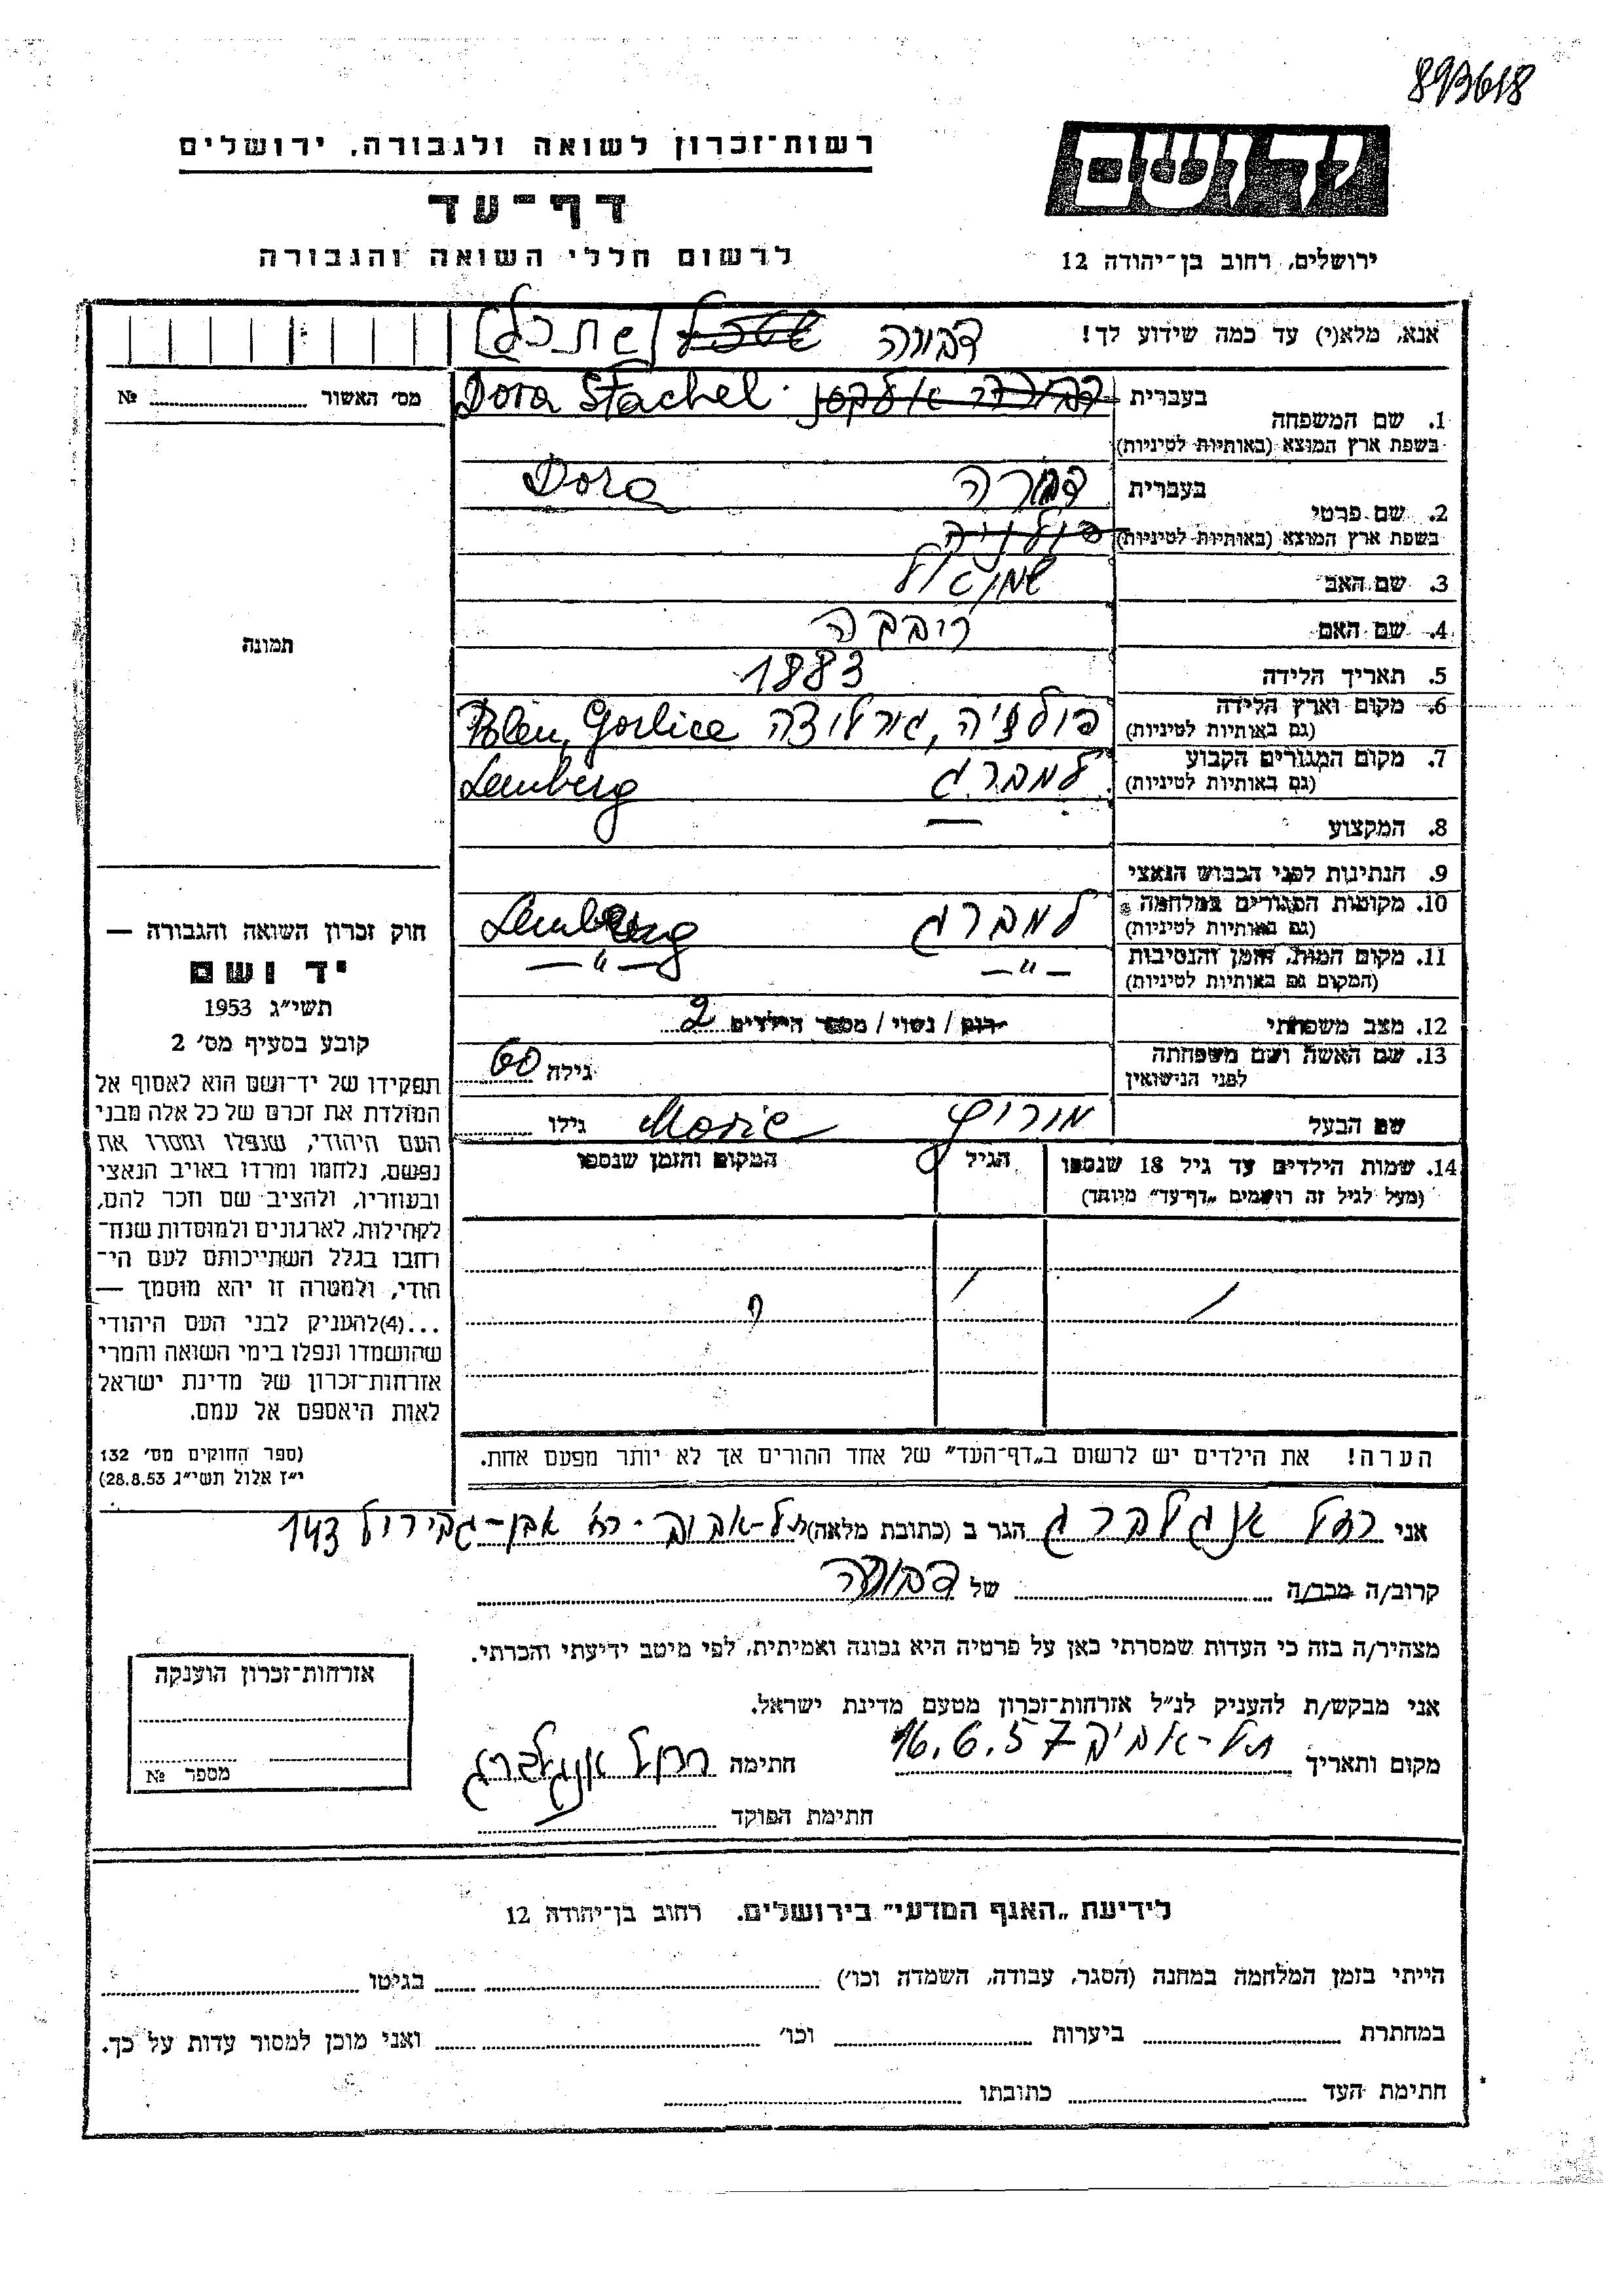 893618
יד ושם
רשות־זכרון לשואה ולגבורה, ירושלים
דף־עד
לרשום חללי השואה והגבורה
ירושלים, רחוב בן־יהודה 12
אנא, מלא(י) עד כמה שידוע לך!
דבורה [שתכל]
מס׳ האשור № 
1. שם המשפחה
בעברית Dora Stachel
בשפת ארץ המוצא (באותיות לטיניות)
2. שם פרטי
בעברית דבורה Dora
בשפת ארץ המוצא (באותיות לטיניות)
3. שם האב שמואל
4. שם האם רבקה
5. תאריך הלידה 1883
6. מקום וארץ הלידה פולניה, גורליצה Polen, Gorlice
(גם באותיות לטיניות)
7. מקום המגורים הקבוע למברג Lemberg
(גם באותיות לטיניות)
8. המקצוע —
9. הנתינות לפני הכבוש הנאצי
10. מקומות המגורים במלחמה למברג Lemberg
(גם באותיות לטיניות)
11. מקום המות, הזמן והנסיבות —״— —״—
(המקום גם באותיות לטיניות)
12. מצב משפחתי רווק / נשוי / מספר הילדים 2
13. שם האשה ושם משפחתה גילה 60
לפני הנישואין
שם הבעל מוריץ גילו
14. שמות הילדים עד גיל 18 שנספו הגיל המקום והזמן שנספו
(מעל לגיל זה רושמים „דף־עד״ מיוחד)
הערה! את הילדים יש לרשום ב„דף־העד״ של אחד ההורים אך לא יותר מפעם אחת.
תמונה
חוק זכרון השואה והגבורה —
יד ושם
תשי״ג 1953
קובע בסעיף מס׳ 2
תפקידו של יד־ושם הוא לאסוף אל
המולדת את זכרם של כל אלה מבני
העם היהודי, שנפלו ומסרו את
נפשם, נלחמו ומרדו באויב הנאצי
ובעוזריו, ולהציב שם וזכר להם,
לקהילות, לארגונים ולמוסדות שנח־
רבו בגלל השתייכותם לעם הי־
הודי, ולמטרה זו יהא מוסמך —
...(4)להעניק לבני העם היהודי
שהושמדו ונפלו בימי השואה והמרי
אזרחות־זכרון של מדינת ישראל
לאות היאספם אל עמם.
(ספר החוקים מס׳ 132
י״ז אלול תשי״ג 28.8.53)
אני רחל אנגלברג הגר ב (כתובת מלאה) תל-אביב - רח׳ אבן-גבירול 143
קרוב/ה מכר/ה של דבורה
מצהיר/ה בזה כי העדות שמסרתי כאן על פרטיה היא נכונה ואמיתית, לפי מיטב ידיעתי והכרתי.
אני מבקש/ת להעניק לנ״ל אזרחות־זכרון מטעם מדינת ישראל.
מקום ותאריך תל-אביב 16.6.57 חתימה רחל אנגלברג
חתימת הפוקד
אזרחות־זכרון הוענקה
מספר №
לידיעת „האגף המדעי״ בירושלים. רחוב בן־יהודה 12
הייתי בזמן המלחמה במחנה (הסגר, עבודה, השמדה וכו׳) בגיטו
במחתרת ביערות וכו׳ ואני מוכן למסור עדות על כך.
חתימת העד כתובתו